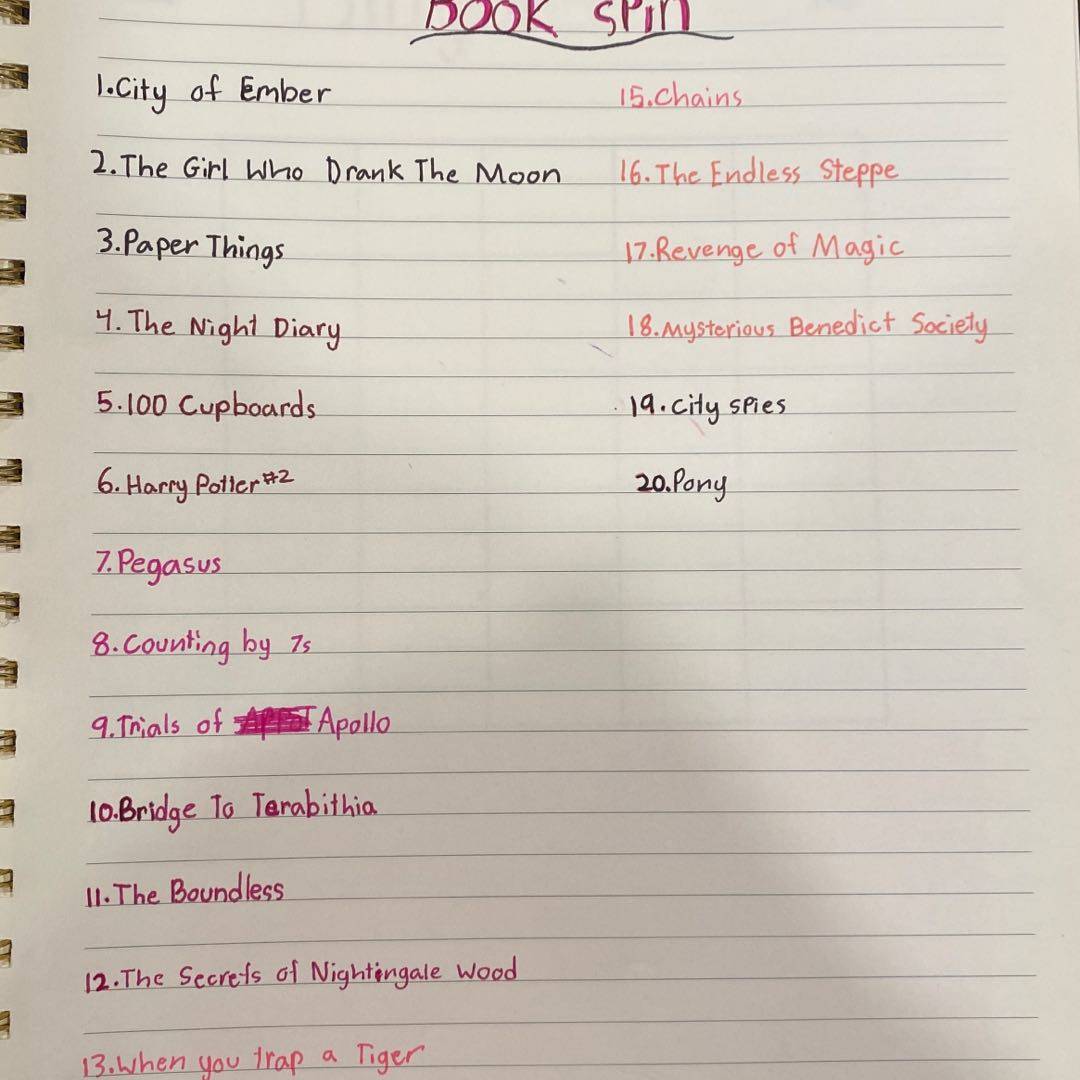 BOOK SPIN
1.City of Ember
2.The Girl Who Drank The Moon
3.Paper Things
4. The Night Diary
5.100 Cupboards
6. Harry Potter #2
7. Pegasus
8. Counting by 7s
9. Trials of Apollo
10.Bridge To Terabithia
11. The Boundless
12. The Secrets of Nightingale Wood
13.When you trap a Tiger
15.Chains
16. The Endless Steppe
17.Revenge of Magic
18.Mysterious Benedict Society
19. City spies
20.Pony